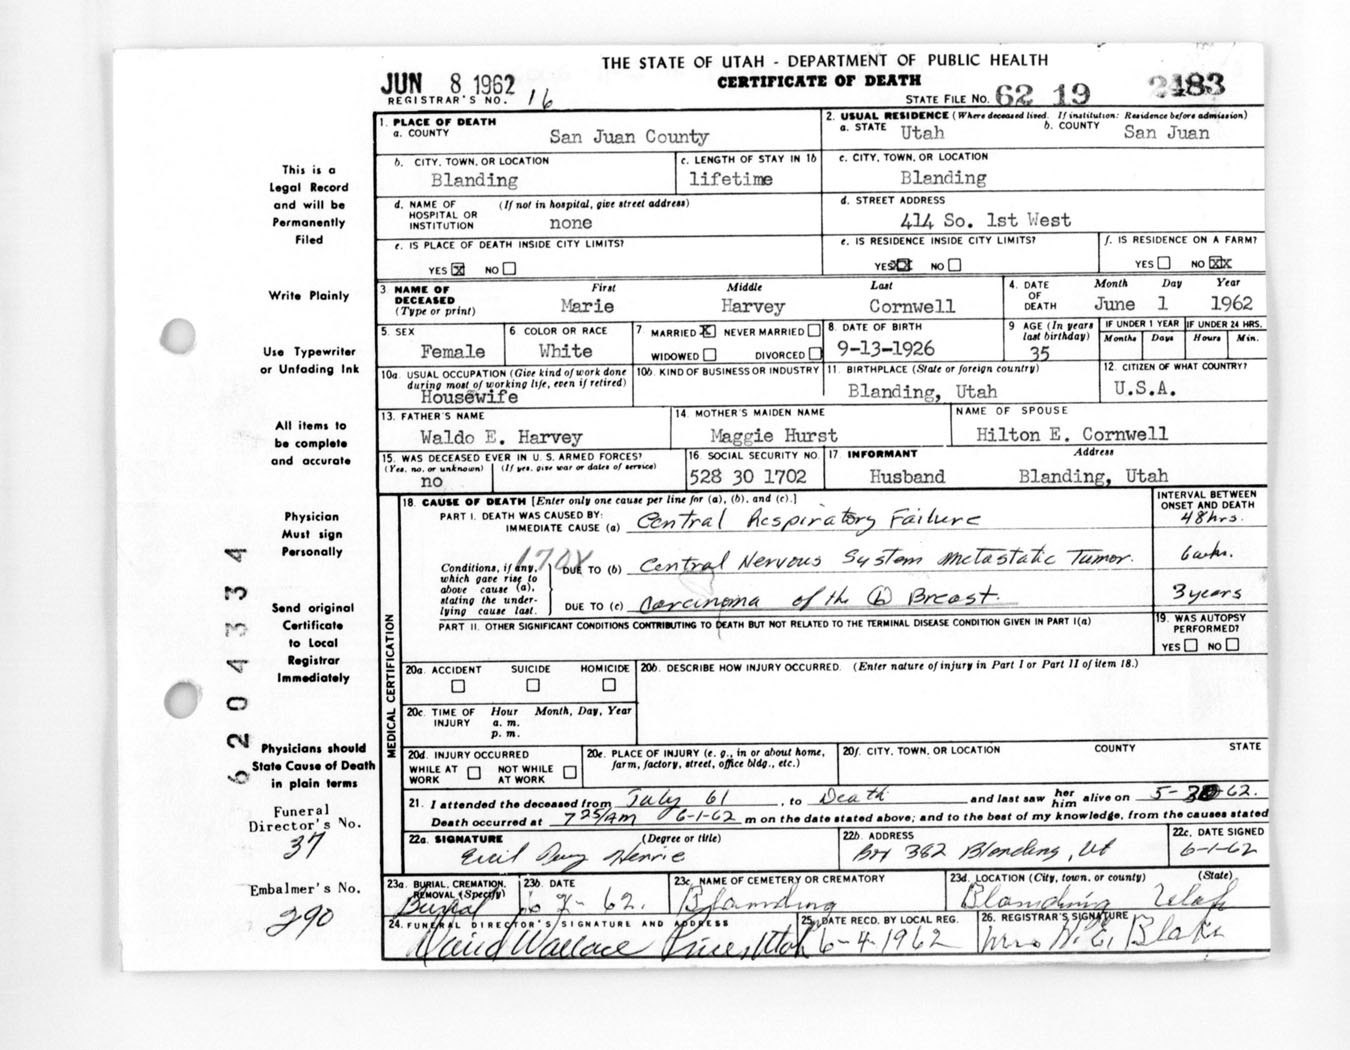 THE STATE OF UTAH - DEPARTMENT OF PUBLIC HEALTH
CERTIFICATE OF DEATH
JUN 8 1962
REGISTRAR'S NO. 16
STATE FILE NO. 62 19 2483
1. PLACE OF DEATH
a. COUNTY San Juan County
2. USUAL RESIDENCE (Where deceased lived. If institution: Residence before admission)
a. STATE Utah b. COUNTY San Juan
b. CITY, TOWN, OR LOCATION Blanding
c. LENGTH OF STAY IN 1b lifetime
c. CITY, TOWN, OR LOCATION Blanding
d. NAME OF HOSPITAL OR INSTITUTION (If not in hospital, give street address) none
d. STREET ADDRESS 414 So. 1st West
e. IS PLACE OF DEATH INSIDE CITY LIMITS?
YES ☒ NO ☐
e. IS RESIDENCE INSIDE CITY LIMITS?
YES ☒ NO ☐
f. IS RESIDENCE ON A FARM?
YES ☐ NO ☒
3. NAME OF DECEASED (Type or print)
First Middle Last
Marie Harvey Cornwell
4. DATE OF DEATH
Month Day Year
June 1 1962
5. SEX Female
6 COLOR OR RACE White
7 MARRIED ☒ NEVER MARRIED ☐
WIDOWED ☐ DIVORCED ☐
8. DATE OF BIRTH 9-13-1926
9 AGE (In years last birthday) 35
IF UNDER 1 YEAR Months Days
IF UNDER 24 HRS. Hours Min.
10a. USUAL OCCUPATION (Give kind of work done during most of working life, even if retired) Housewife
10b. KIND OF BUSINESS OR INDUSTRY
11. BIRTHPLACE (State or foreign country) Blanding, Utah
12. CITIZEN OF WHAT COUNTRY? U.S.A.
13. FATHER'S NAME Waldo E. Harvey
14. MOTHER'S MAIDEN NAME Maggie Hurst
NAME OF SPOUSE Hilton E. Cornwell
15. WAS DECEASED EVER IN U. S. ARMED FORCES?
(Yes, no, or unknown) (If yes, give war or dates of service)
no
16. SOCIAL SECURITY NO. 528 30 1702
17. INFORMANT Address
Husband Blanding, Utah
MEDICAL CERTIFICATION
18. CAUSE OF DEATH [Enter only one cause per line for (a), (b), and (c).]
INTERVAL BETWEEN ONSET AND DEATH
PART I. DEATH WAS CAUSED BY:
IMMEDIATE CAUSE (a) Central Respiratory Failure 48 hrs.
170X
Conditions, if any, which gave rise to above cause (a), stating the underlying cause last.
DUE TO (b) Central Nervous System Metastatic Tumor. 6 wks.
DUE TO (c) Carcinoma of the Breast. 3 years
PART II. OTHER SIGNIFICANT CONDITIONS CONTRIBUTING TO DEATH BUT NOT RELATED TO THE TERMINAL DISEASE CONDITION GIVEN IN PART I(a)
19. WAS AUTOPSY PERFORMED?
YES ☐ NO ☐
20a. ACCIDENT SUICIDE HOMICIDE
☐ ☐ ☐
20b. DESCRIBE HOW INJURY OCCURRED. (Enter nature of injury in Part I or Part II of item 18.)
20c. TIME OF INJURY Hour Month, Day, Year
a. m.
p. m.
20d. INJURY OCCURRED
WHILE AT WORK ☐ NOT WHILE AT WORK ☐
20e. PLACE OF INJURY (e. g., in or about home, farm, factory, street, office bldg., etc.)
20f. CITY, TOWN, OR LOCATION COUNTY STATE
21. I attended the deceased from July 61, to Death and last saw her him alive on 5-30-62.
Death occurred at 7 25/AM 6-1-62 m on the date stated above; and to the best of my knowledge, from the causes stated
22a. SIGNATURE (Degree or title)
22b. ADDRESS Box 382 Blanding, Ut
22c. DATE SIGNED 6-1-62
23a. BURIAL, CREMATION, REMOVAL (Specify) Burial
23b. DATE
62.
23c. NAME OF CEMETERY OR CREMATORY Blanding
23d. LOCATION (City, town, or county) (State)
Blanding Utah
24. FUNERAL DIRECTOR'S SIGNATURE AND ADDRESS
David Wallace Price, Utah
25. DATE RECD. BY LOCAL REG. 6-4-1962
26. REGISTRAR'S SIGNATURE
Mrs
This is a
Legal Record
and will be
Permanently
Filed
Write Plainly
Use Typewriter
or Unfading Ink
All items to
be complete
and accurate
Physician
Must sign
Personally
Send original
Certificate
to Local
Registrar
Immediately
Physicians should
State Cause of Death
in plain terms
Funeral
Director's No.
37
Embalmer's No.
290
6204334